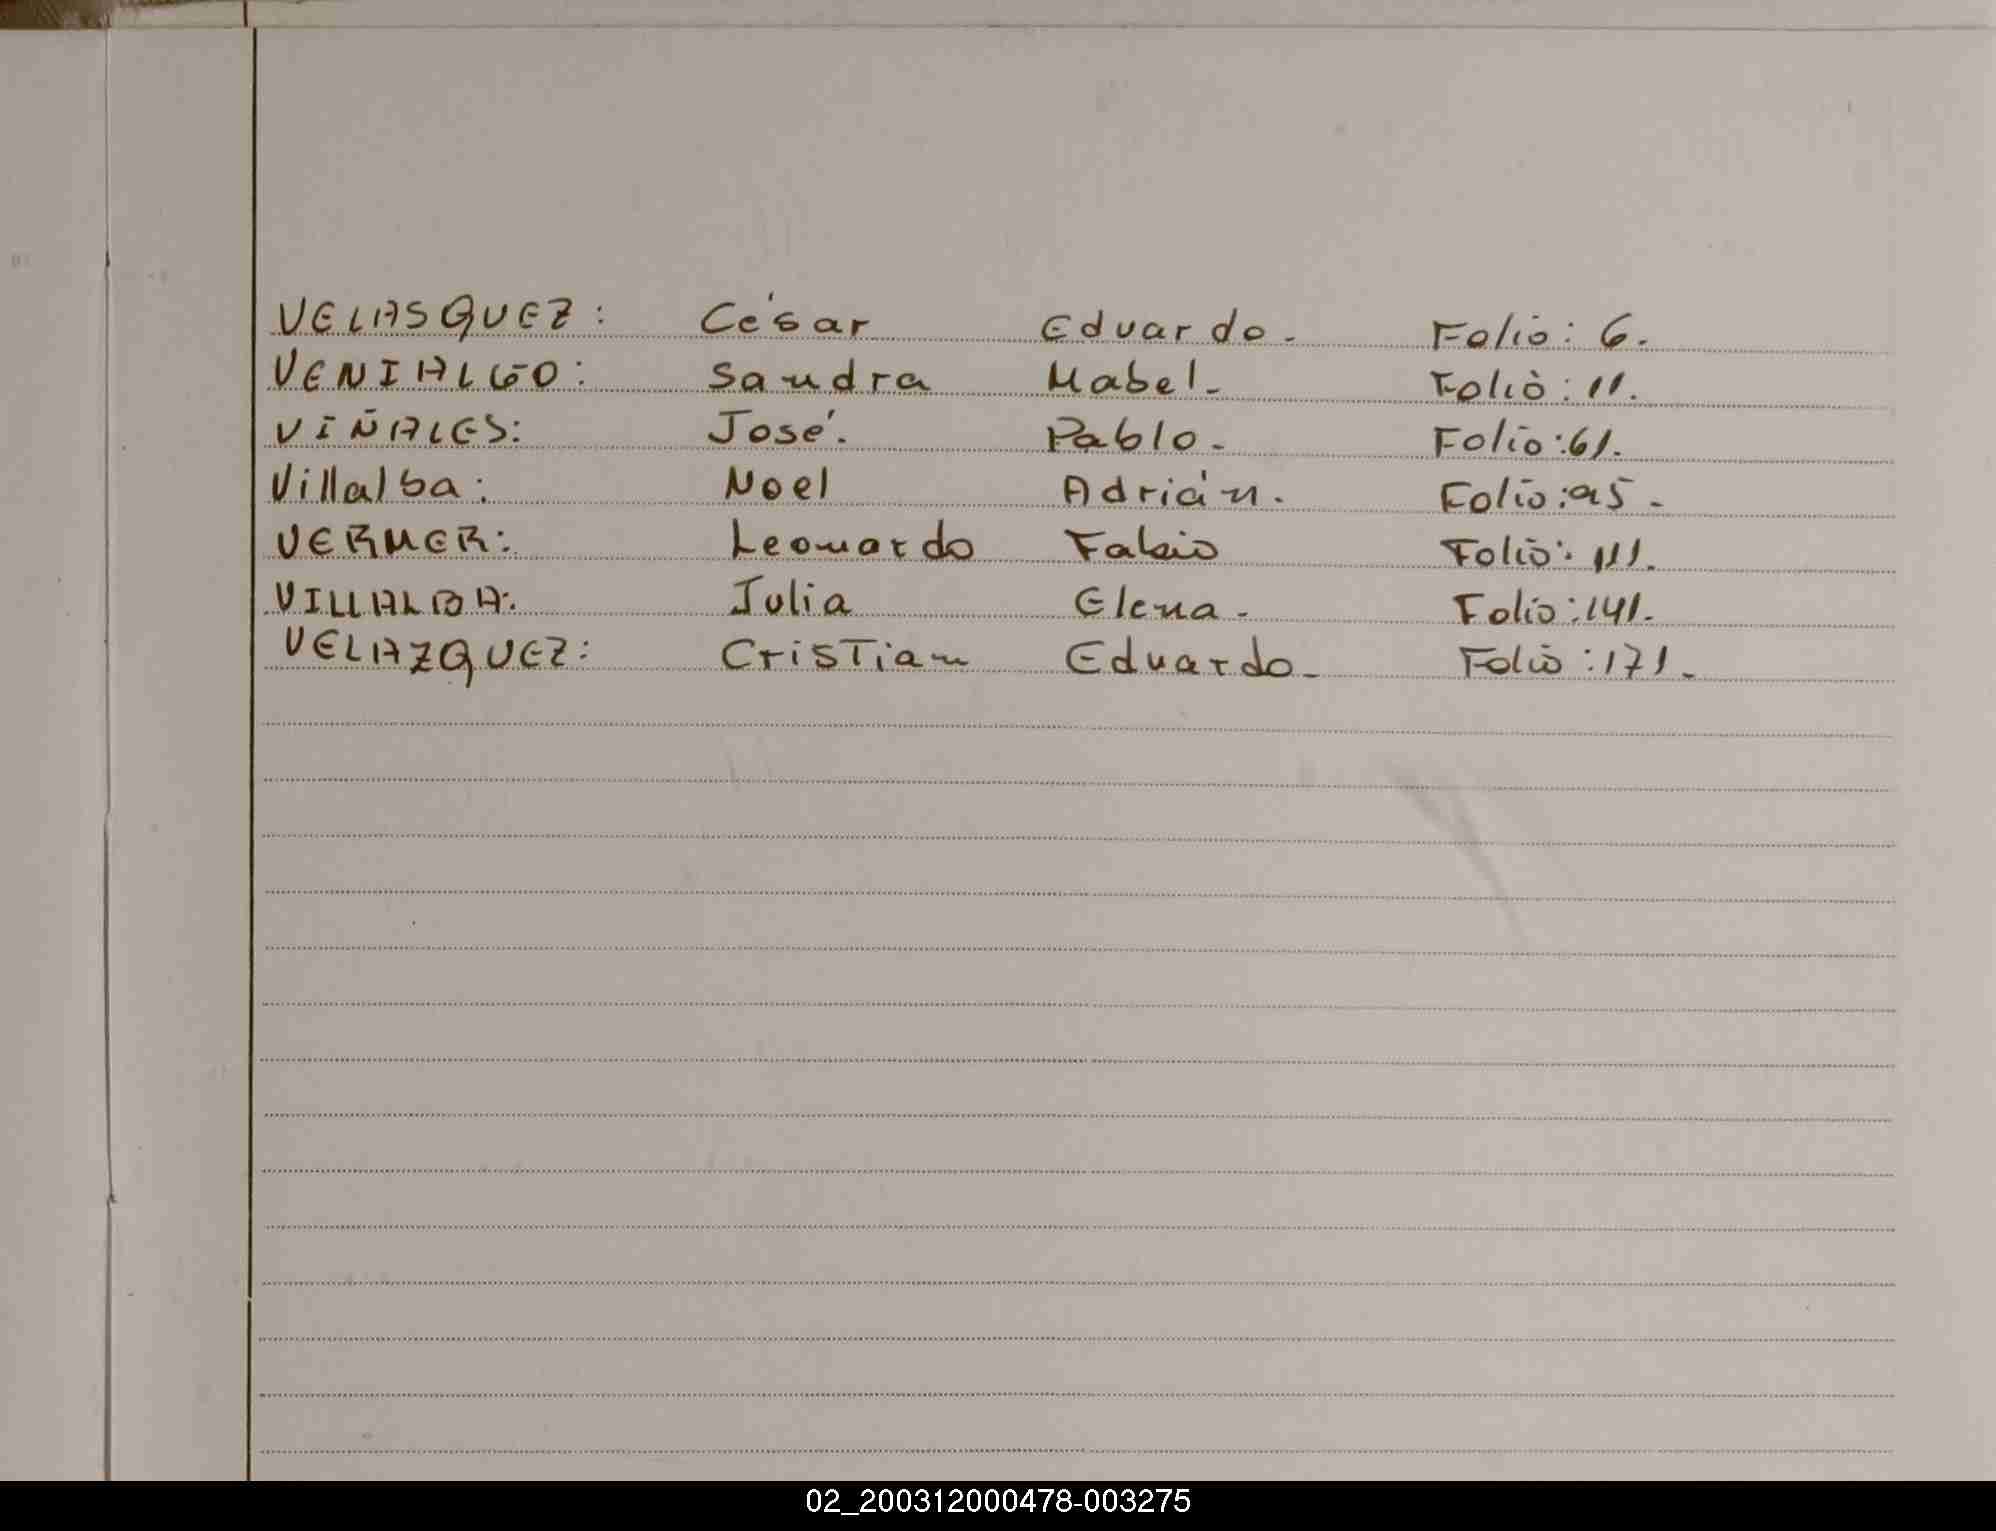 VELASQUEZ: César Eduardo. Folio: 6.
VENIALGO: Sandra Mabel. Folio: 11.
VIÑALES: José. Pablo. Folio: 61.
Villalba: Noel Adrián. Folio: 95.
VERMER: Leonardo Fabio Folio: 111.
VILLALBA: Julia Elena. Folio: 141.
VELAZQUEZ: Cristian Eduardo. Folio: 171.
02_200312000478-003275